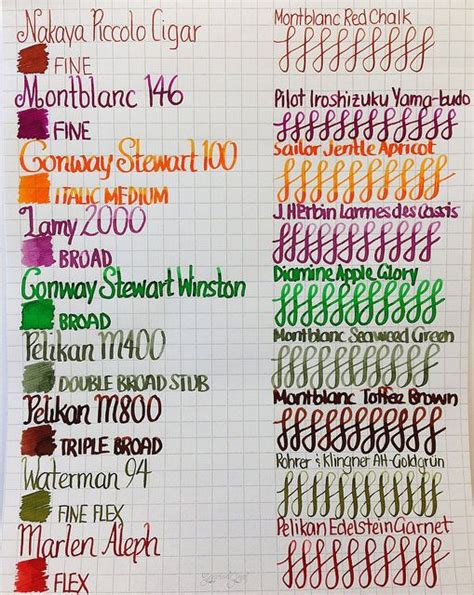 Nakaya Piccolo Cigar
FINE
Montblanc Red Chalk
Montblanc 146
FINE
Pilot Iroshizuku Yama-budo
Conway Stewart 100
ITALIC MEDIUM
Sailor Jentle Apricot
Lamy 2000
BROAD
J. HErbin Larmes des Cassis
Conway Stewart Winston
BROAD
Diamine Apple Glory
Pelikan M400
DOUBLE BROAD STUB
Montblanc Seaweed Green
Pelikan M800
TRIPLE BROAD
Montblanc Toffee Brown
Waterman 94
FINE FLEX
Rohrer & Klingner Alt-Goldgrün
Marlen Aleph
FLEX
Pelikan Edelstein Garnet